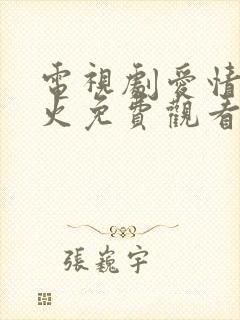 電視劇愛情
火免費觀看
張巍宇